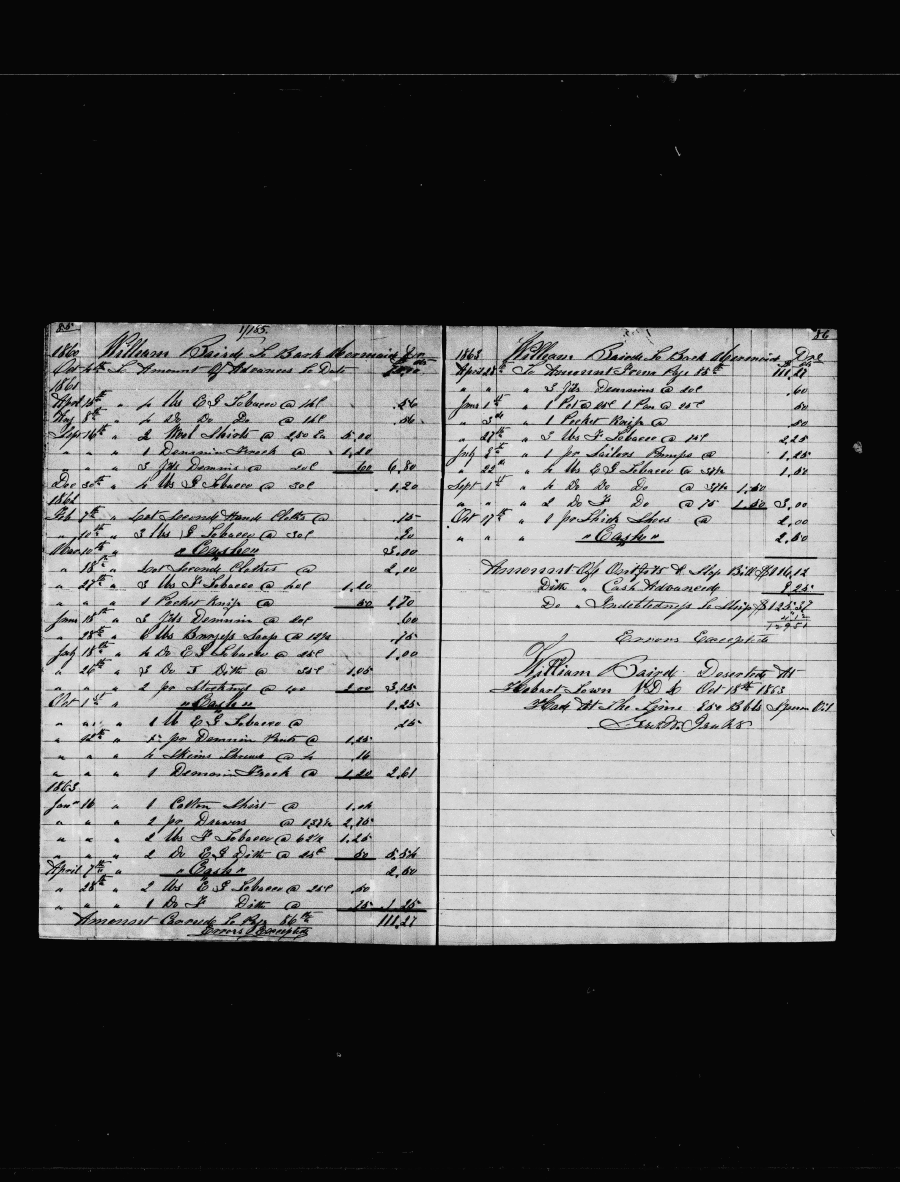 85
1/155.
1860 William Baird To Bark Mermaid Dr
Oct 4th To Amount Of Advances To Date
1861
April 15th " 4 lbs E I Tobacco @ 14c .56
" 8th " 4 Do Do Do @ 14c .56
Sept 16th " 2 Wool Shirts @ 2,50 Ea 5.00
" " " 1 Denmin Frock @ 1,20
" " " 3 Yds Denmin @ 20c 60 6,80
Dec 30th " 4 lbs I Tobacco @ 30c 1,20
1862
Feb 7th " Lot Second Hand Cloths @ .75
" 10th " 3 lbs I Tobacco @ 30c .90
10th " " Cash " 3.00
" 18th " Lot Second Clothes @ 2,00
" 27th " 3 lbs F Tobacco @ 40c 1,20
" " " 1 Pocket Knife @ 50 1,70
June 18th " 3 Yds Denmin @ 20c 60
" 28th " 6 lbs Soap @ 12½ .75
July 18th " 4 Do E I Tobacco @ 25c 1,00
" 26th " 3 Do F Ditto @ 35c 1,05
" " " 2 pr Stockings @ 100 2.00 3,05
Oct 1st " " Cash " 1,25
" " " 1 lb E I Tobacco @ 25
" " 1 pr Denmin Pants @ 1,25
" " " 4 Skeins Thread @ 4 .16
" " " 1 Denmin Frock @ 1,20 2,61
1863
Jany 16 " 1 Cotton Shirt @ 1,04
" " " 2 pr Drawers @ 137½ 2,75
" " " 2 lbs F Tobacco @ 62½ 1,25
" " " 2 Do E I Ditto @ 25c 50 5,54
April 7th " " Cash " 2,50
" 28th " 2 lbs E I Tobacco @ 25c .50
" " " 1 Do F Ditto @ .75 1,25
Amount Carried To Page 86th 111.27
Errors Excepted
86
1863 William Baird To Bark Mermaid Dr
April 28th To Amount From Page 85th 111,27
" " " 3 Yds Denmin @ 20c .60
June 1st " 1 Pot @ 25c 1 Pan @ 25c 50
" 3d " 1 Pocket Knife @ .50
" 27th " 3 lbs F Tobacco @ 75c 2,25
July 8th " 1 pr Sailors Pumps @ 1,25
" 22d " 4 lbs E I Tobacco @ 37½ 1,50
Sept 1st " 4 Do Do Do @ 37½ 1,50
" " " 2 Do F Do @ 75 1.50 3,00
Oct 17th " 1 pr Thick Shoes @ 2,00
" " " " Cash " 2,50
Amount Of Outfits & Slop Bill $116,12
Ditto " Cash Advanced 9.25
Do " Indebtedness To Ship $125.37
Errors Excepted
William Baird Deserted At
Hobart Town V D L Oct 18th 1863
Had At The Time Bbls Sperm Oil